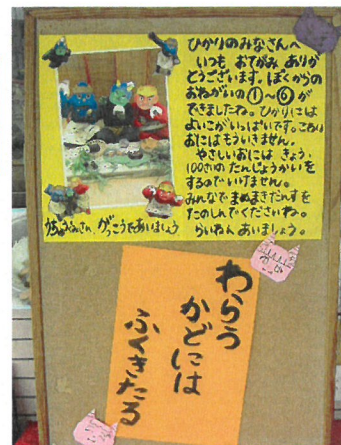 ひかりのみなさんへ
いつも おてがみ ありが
とうございます。ぼくからの
おねがいの①〜⑥が
できましたね。ひかりには
よいこがいっぱいです。こわい
おには もういきません。
やさしいおには きょう、
100さいのたんじょうかいを
するのでいけません。
みんなで まめまきだんすを
たのしんでくださいね。
らいねん あいましょう。
さん、がっこうであいましょう
わらう
かどには
ふくきたる